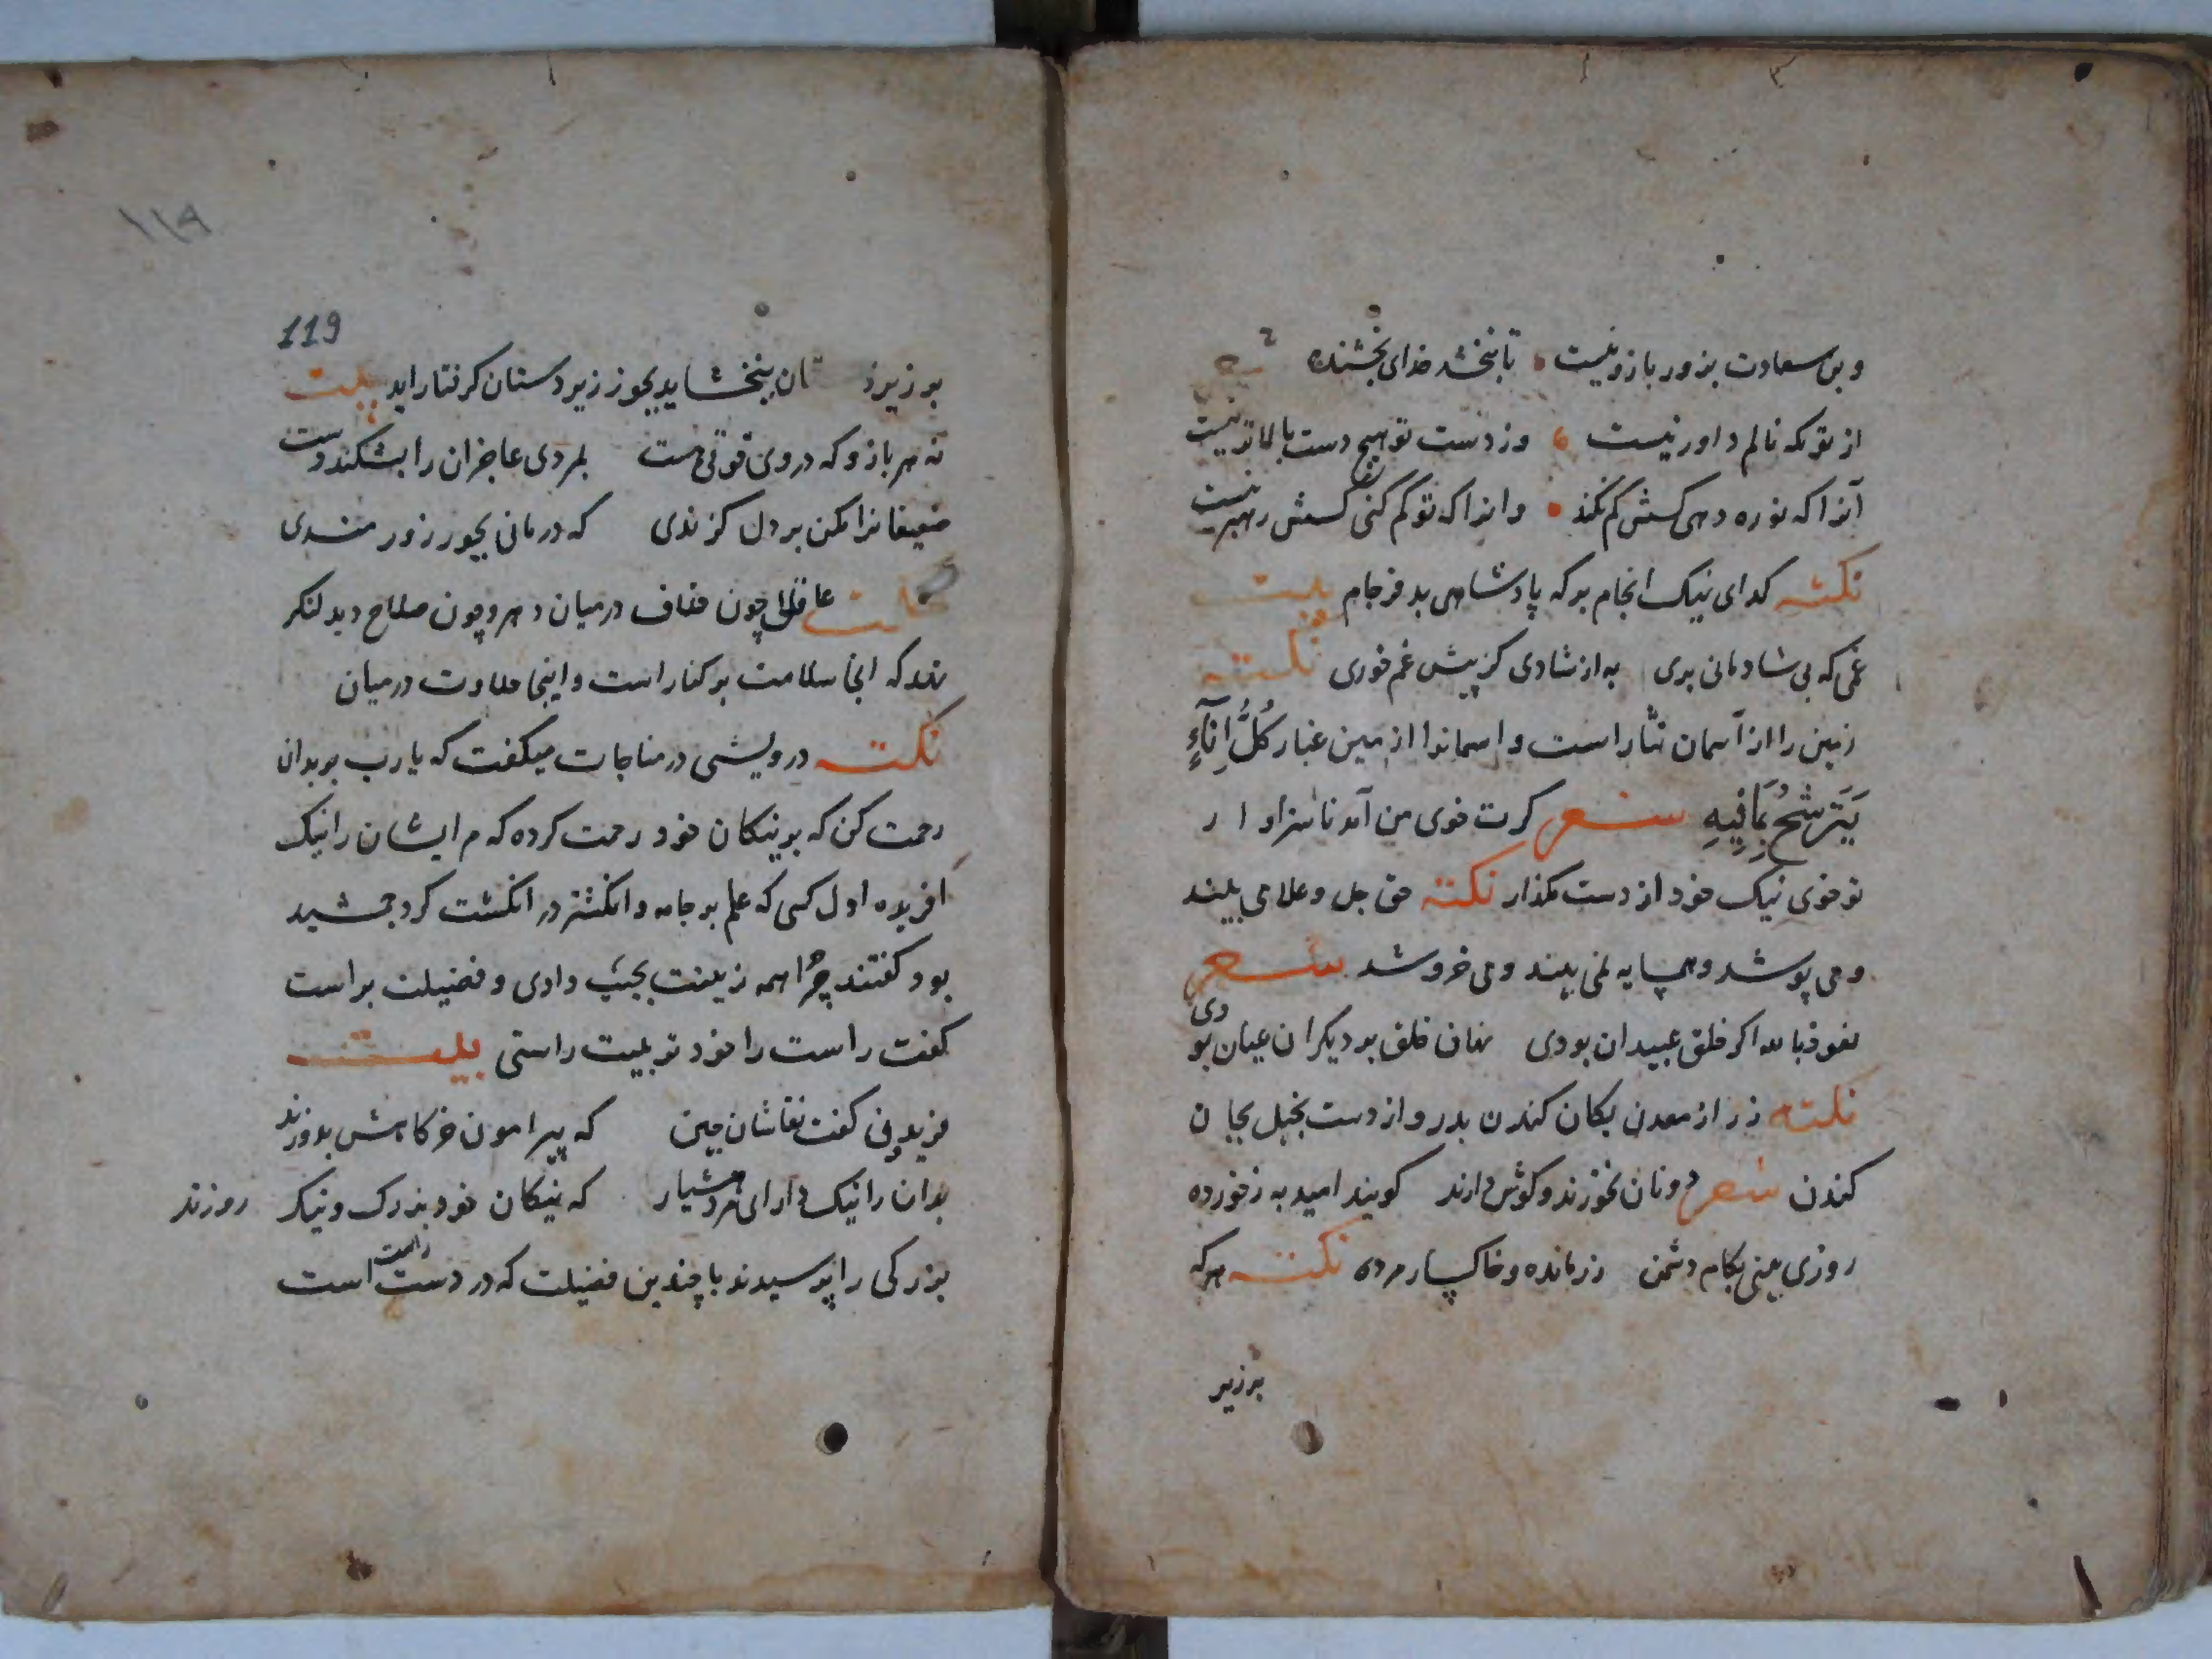 وین سعادت بزور بازو نیست تا نبخشد خدای بخشنده
از تو بکه نالم داور نیست وز دست تو هیچ دست بالاتر نیست
آنرا که تو ره دهی کسش کم نکند وانرا که تو کم کنی کسش رهبر نیست
نکته کدای نیک انجام به که پادشاهی بد فرجام بیت
غمی که بی شادمانی بری به از شادی کز پیش غم خوری نکته
زمین را از آسمان نثار است و اسمانرا از زمین غبار کُلُّ اِنَآءٍ
یَتَرشَّحُ بِمَا فِیهِ شعر کرت خوی من آمد ناسزاوار
تو خوی نیک خود از دست مکذار نکته حق جل و علا می بیند
و می پوشد و همسایه نمی بیند و می خروشد شعر
نعوذ بالله اکر خلق غیبدان بودی نهان خلق بر دیکران عیان بودی
نکته زر از معدن بکان کندن بدر و از دست بخیل بجان
کندن شعر دونان نخورند و کوش دارند کویند امید به ز خورده
روزی بینی بکام دشمن زر مانده و خاکسار مرده نکته هرکه
برزیر
119
١١٩
بر زیرد تان نبخشاید بجور زبردستان کرفتار اید بیت
نه هر بازو که در وی قوتی هست بمردی عاجزان را بشکند دست
ضعیفانرا مکن بر دل کزندی که درمانی بجور زورمندی
عاقل چون خلاف در میان دهر و چون صلاح دید لنکر
نهد که انجا سلامت بر کنار است و اینجا حلاوت در میان
نکته درویشی در مناجات میکفت که یارب بر بدان
رحمت کن که بر نیکان خود رحمت کرده که م ایشان را نیک
افریده اول کسی که علم بر جامه و انکشتر در انکشت کرد جمشید
بود کفتند چرا همه زینت بچپ دادی و فضیلت براست
کفت راست را خود تربیت راستی بیت
فریدون کفت نقاشان چین که پیرامون خرکاهش بدوزند
بدان را نیک دار ای مرد هشیار که نیکان خود بزرک و نیک روزند
بزرکی را پرسیدند با چندین فضیلت که در دست راست است